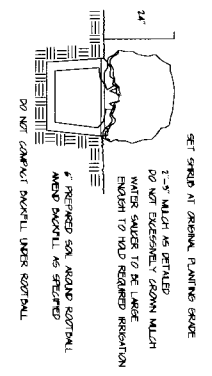 24"
SET SHRUB AT ORIGINAL PLANTING GRADE
2"-3" MULCH AS DETAILED
DO NOT EXCESSIVELY CROWN MULCH
WATER SAUCER TO BE LARGE
ENOUGH TO HOLD REQUIRED IRRIGATION
6" PREPARED SOIL AROUND ROOTBALL
AMEND BACKFILL AS SPECIFIED
DO NOT COMPACT BACKFILL UNDER ROOTBALL